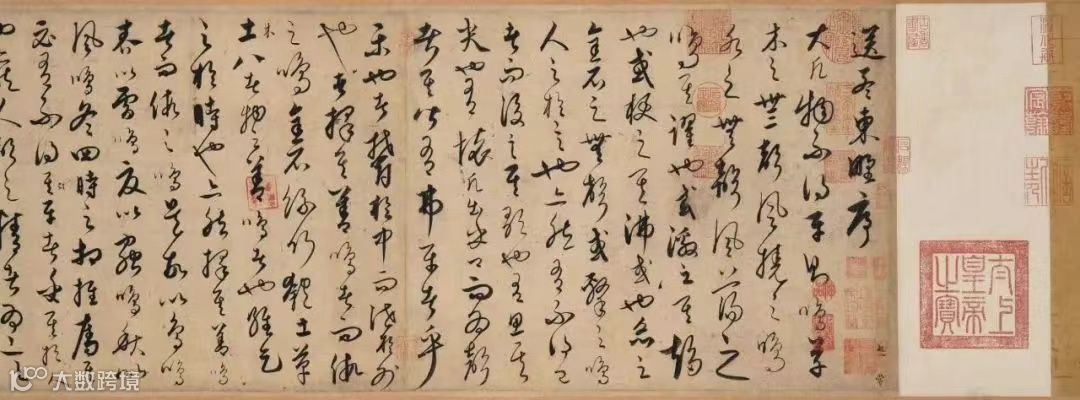 送孟東野序
大凡物不得平則鳴草
木之無聲風撓之鳴
水之無聲風蕩之
鳴其躍也或激之其趨
也或梗之其沸也或炙之
金石之無聲或擊之鳴
人之於言也亦然有不得已
者而後言其歌也有思其
哭也有懷凡出乎口而為聲
者其皆有弗平者乎
樂也者鬱於中而泄於外
也者擇其善鳴者而假
之鳴金石絲竹匏土革
木八者物之善鳴者也維天
之於時也亦然擇其善鳴
者而假之鳴是故以鳥鳴
春以雷鳴夏以蟲鳴秋以
風鳴冬四時之相推奪其
必有不得其平者乎其於
太上皇帝之寶
大数跨境